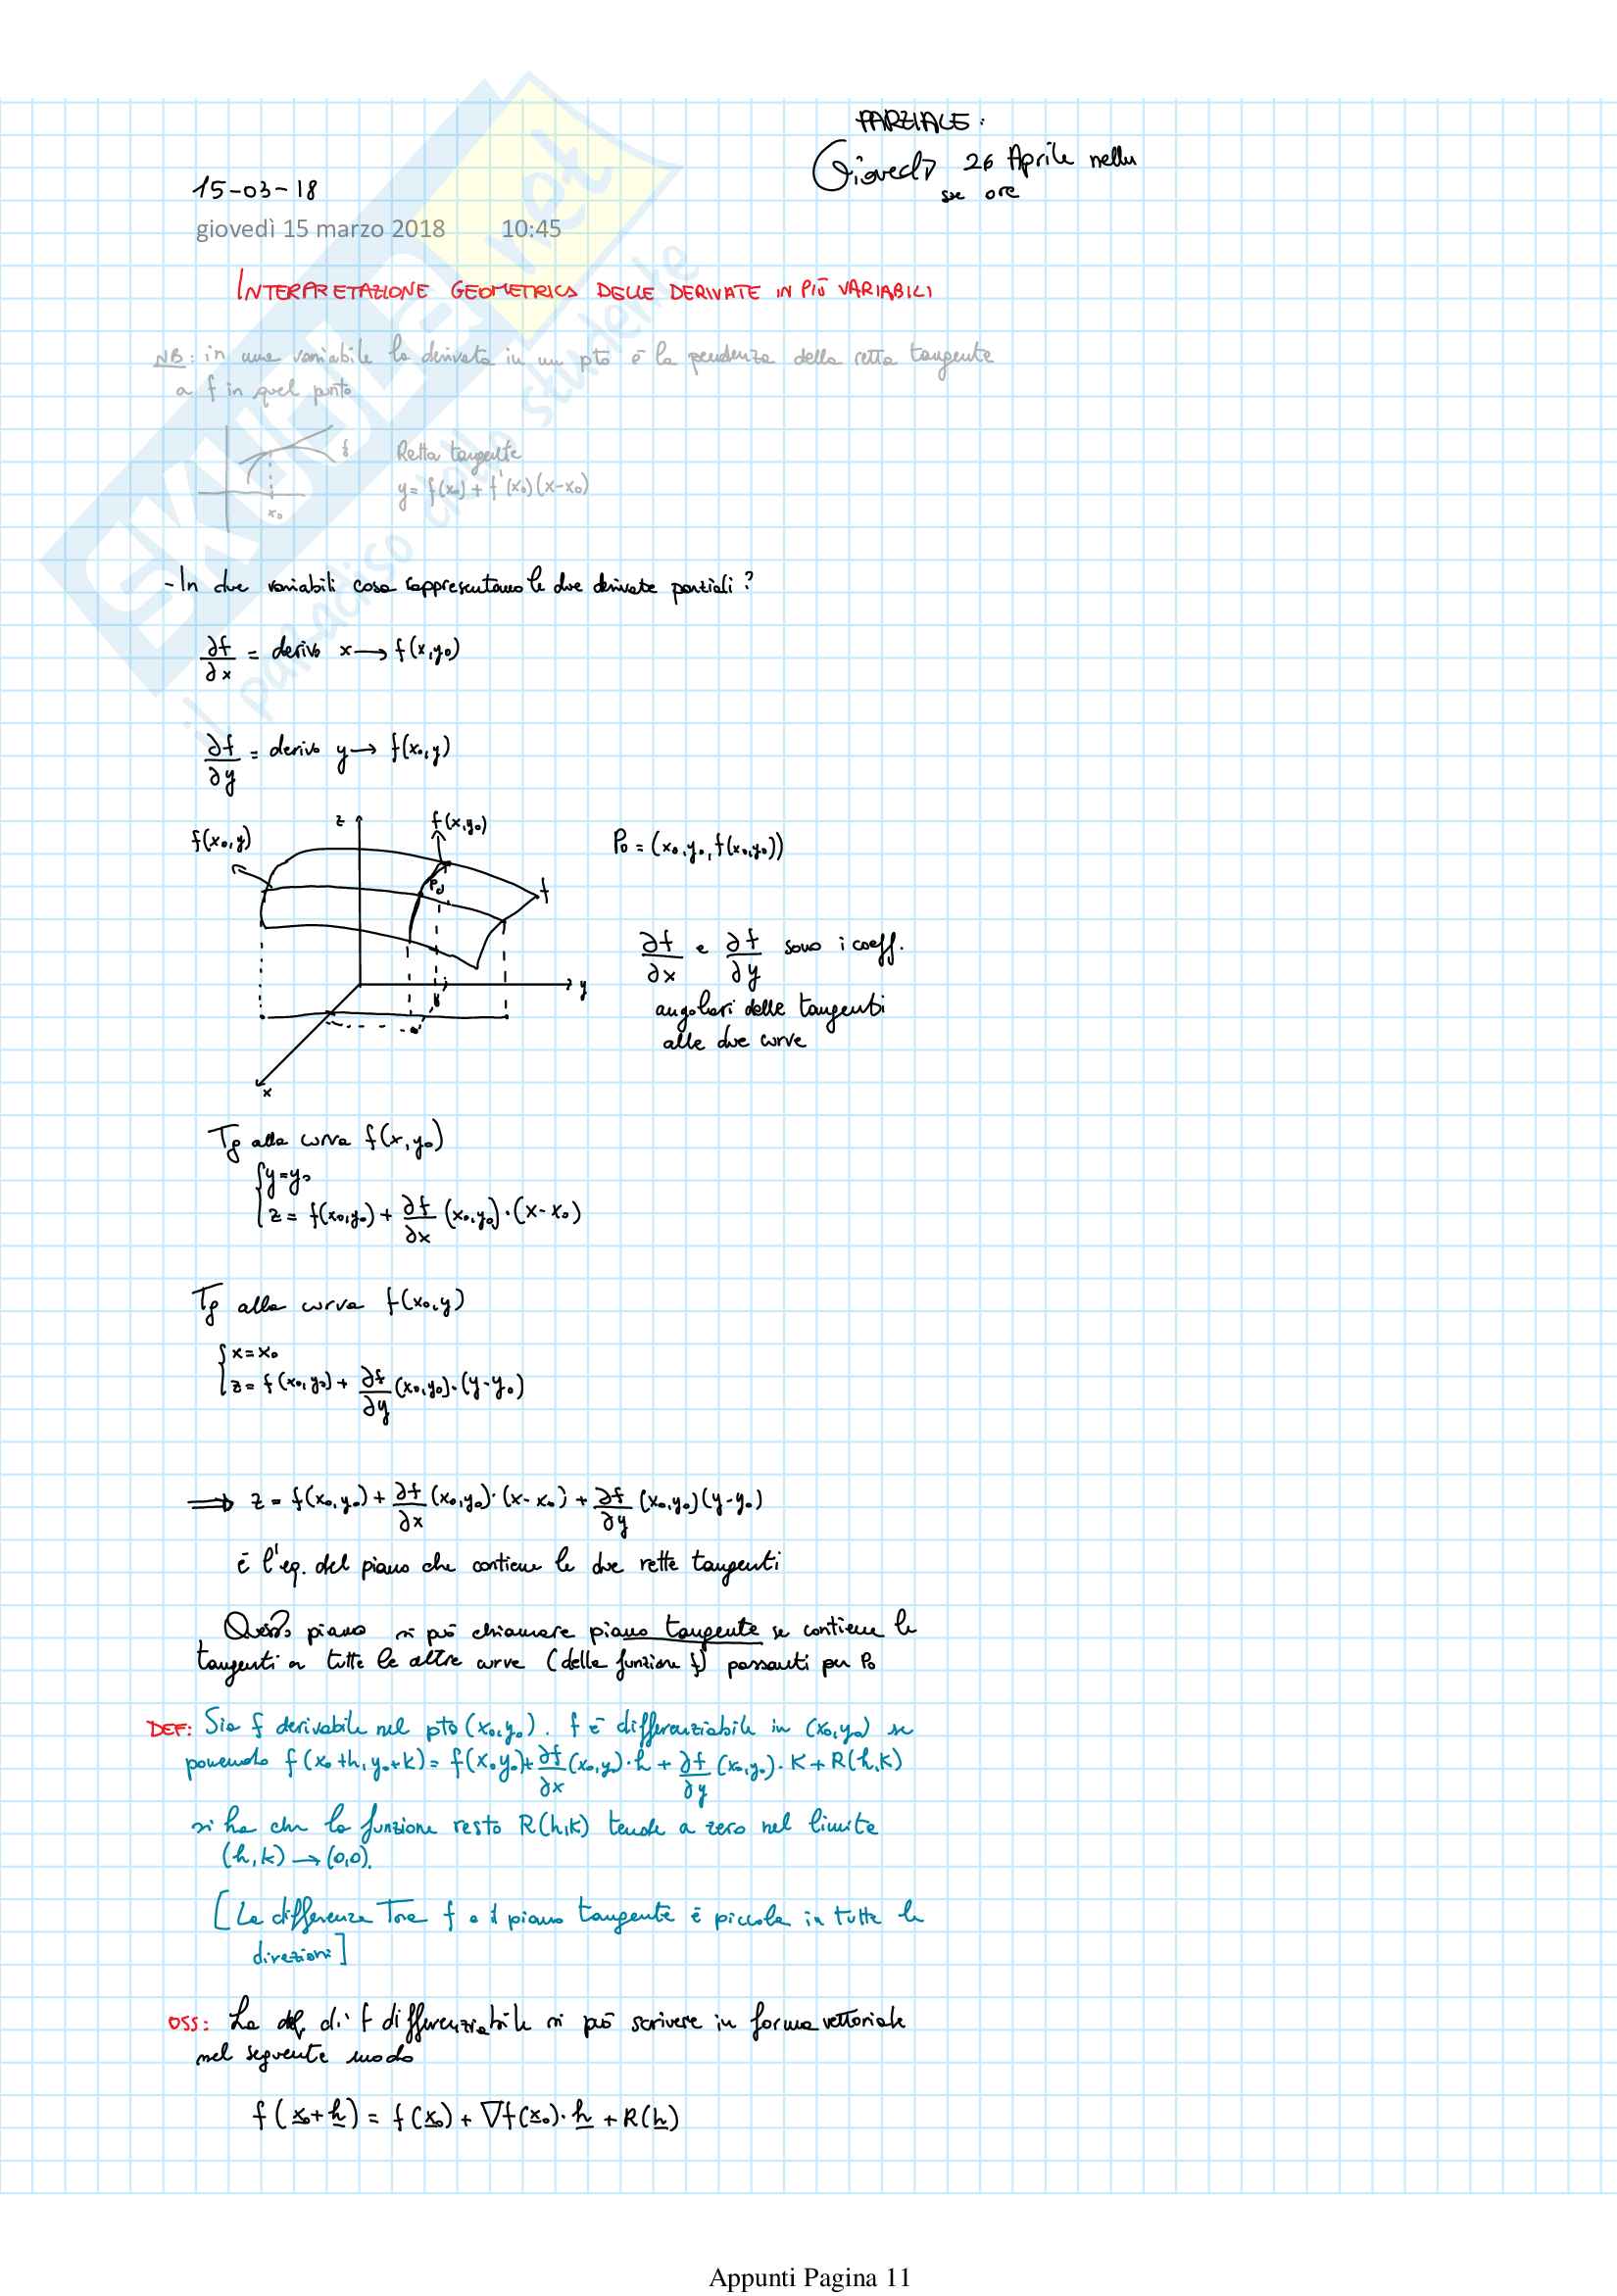 PARZIALE:
Giovedì 26 Aprile nelle
sue ore
15-03-18
giovedì 15 marzo 2018 10:45
INTERPRETAZIONE GEOMETRICA DELLE DERIVATE IN PIÙ VARIABILI
NB: in una variabile la derivata in un pto è la pendenza della retta tangente
a f in quel punto
f
x₀
Retta tangente
y = f(x₀) + f'(x₀)(x-x₀)
- In due variabili cosa rappresentano le due derivate parziali?
∂f/∂x = derivo x → f(x,y₀)
∂f/∂y = derivo y → f(x₀,y)
f(x₀,y)
z
f(x,y₀)
P₀
f
y
x
P₀ = (x₀,y₀,f(x₀,y₀))
∂f/∂x e ∂f/∂y sono i coeff.
angolari delle tangenti
alle due curve
Tg alla curva f(x,y₀)
{ y=y₀
z = f(x₀,y₀) + ∂f/∂x (x₀,y₀)·(x-x₀)
Tg alla curva f(x₀,y)
{ x=x₀
z = f(x₀,y₀) + ∂f/∂y (x₀,y₀)·(y-y₀)
⟹ z = f(x₀,y₀) + ∂f/∂x (x₀,y₀)·(x-x₀) + ∂f/∂y (x₀,y₀)(y-y₀)
è l'eq. del piano che contiene le due rette tangenti
Questo piano si può chiamare piano tangente se contiene le
tangenti a tutte le altre curve (della funzione f) passanti per P₀
DEF: Sia f derivabile nel pto (x₀,y₀). f è differenziabile in (x₀,y₀) se
ponendo f(x₀+h, y₀+k) = f(x₀ y₀) + ∂f/∂x (x₀,y₀)·h + ∂f/∂y (x₀,y₀)·K + R(h,K)
si ha che la funzione resto R(h,K) tende a zero nel limite
(h,k) → (0,0).
[La differenza tra f e il piano tangente è piccola in tutte le
direzioni]
OSS: La def. di f differenziabile si può scrivere in forma vettoriale
nel seguente modo
f(x₀+h) = f(x₀) + ∇f(x₀)·h + R(h)
SKUOLA.net
il paradiso dello studente
Appunti Pagina 11